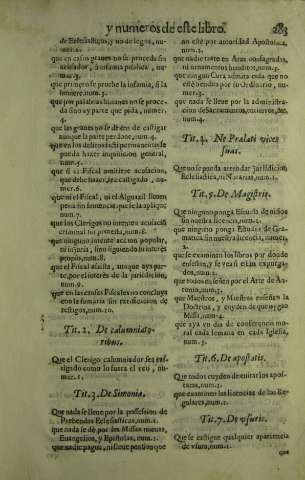 y numeros de este libro. 283
de Eclesiasticos, y no de legos, nu-
mero.2.
que en casos graues no se proceda sin
acusador, ò infamia publica, nu-
mer.3.
que primero se prueue la infamia, si la
huuiere.num.3.
que por palabras liuianas no se proce-
da sino ay parte que pida, numer.
4.
que las graues no se dexen de castigar
aunque la parte perdone, num.4.
que en los delitos
pueda hazer inquisicion general,
num.5.
que si el Fiscal omitiere acusacion,
que deue hazer, sea castigado, nu-
mer.6.
que ni el Fiscal, ni el Alguazil lleuen
pena sin sentencia, que se la aplique
num.7.
que los Clerigos no intenten acusaciõ
criminal sin licencia, num.8.
que ninguno intente accion popular,
ni injuria, sino siguiendo su interes
proprio, num.8.
que el Fiscal assista, aunque aya par-
te, por el interès de la juridicion,
num.9.
que en las causas Fiscales no concluya
con la sumaria sin ratificacion de
testigos, num.10.
Tit.2. De calumniato-
ribus.
Que el Clerigo calumniador sea cas-
tigado como lo fuera el reo, nu-
mer.1.
Tit.3. De Simonia.
Que nada se lleue por la possession de
Prebendas Eclesiasticas, num.1.
que nada se dè por las Missas nueuas,
Euangelios, y Epistolas, num.2.
que nadie pague, ni lleue pension que
no estè por autoridad Apostolica,
num.3.
que nadie trate en Aras consagradas,
ni ornamentos benditos, num.4.
que ningun Cura admita cuda que no
estè
Eclesiastica, num.5.
que nada se lleue por la administra-
cion de Sacramentos, num.6.
Tit.4. Ne Prelati vices
suas.
Que no se pueda arrendar jurisdicion
Eclesiastica, ni Notarias, num.1.
Tit.5. De Magistris.
Que ninguno ponga Escuela de niños
sin nuestra licencia, num.1.
que ninguno ponga Estudio de Gra-
matica, sin nuestra licencia, numer.
2.
que se examinen los libros por donde
enseñan, y se vea si estan expurga-
dos, num.2.
que todos enseñen por el Arte de An-
tonio, num.2.
que Maestros, y Maestras enseñen la
Doctrina, y cuyden de que oygan
Missa, num.3.
que aya en dia de conferencia mo-
ral cada semana en cada Iglesia,
num.5.
Tit.6. De apostatis.
Que todos cuyden de euitar los apos-
tatas, num.1.
que examinen las licencias de los Re-
gulares, num.1.
Tit.7. De vsuris.
Que se castigue qualquier apariencia
de vsura, num.1.
que